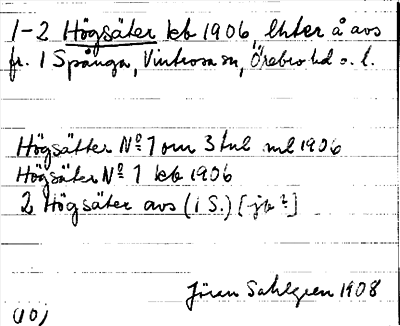 1-2 Högsäter kb 1906, lhter å avs
fr. 1 Spånga, Vintrosa sn, Örebro hd o. l.
Högsätter No 1 om 3 tul ml 1906
Högsäter No 1 kb 1906
2 Högsäter avs (i S.) [jb?]
Jöran Sahlgren 1908
(10)